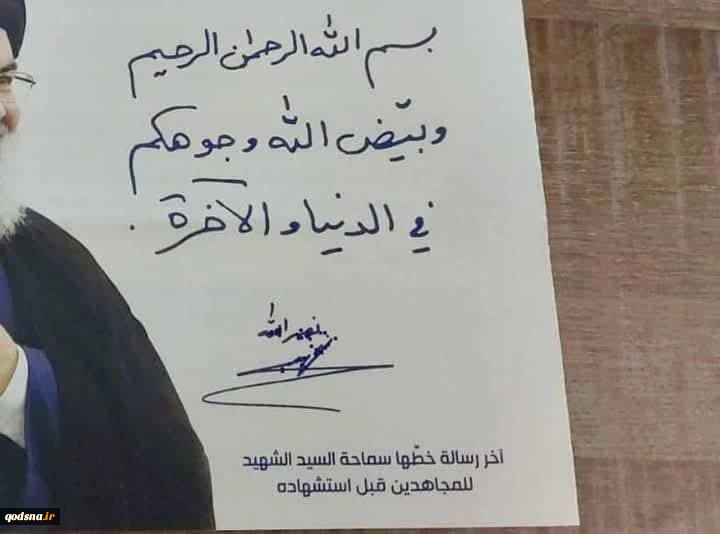 بسم الله الرحمن الرحيم
وبيّض الله وجوهكم
في الدنيا والآخرة.
نصر الله
آخر رسالة خطّها سماحة السيد الشهيد
للمجاهدين قبل استشهاده
qodsna.ir